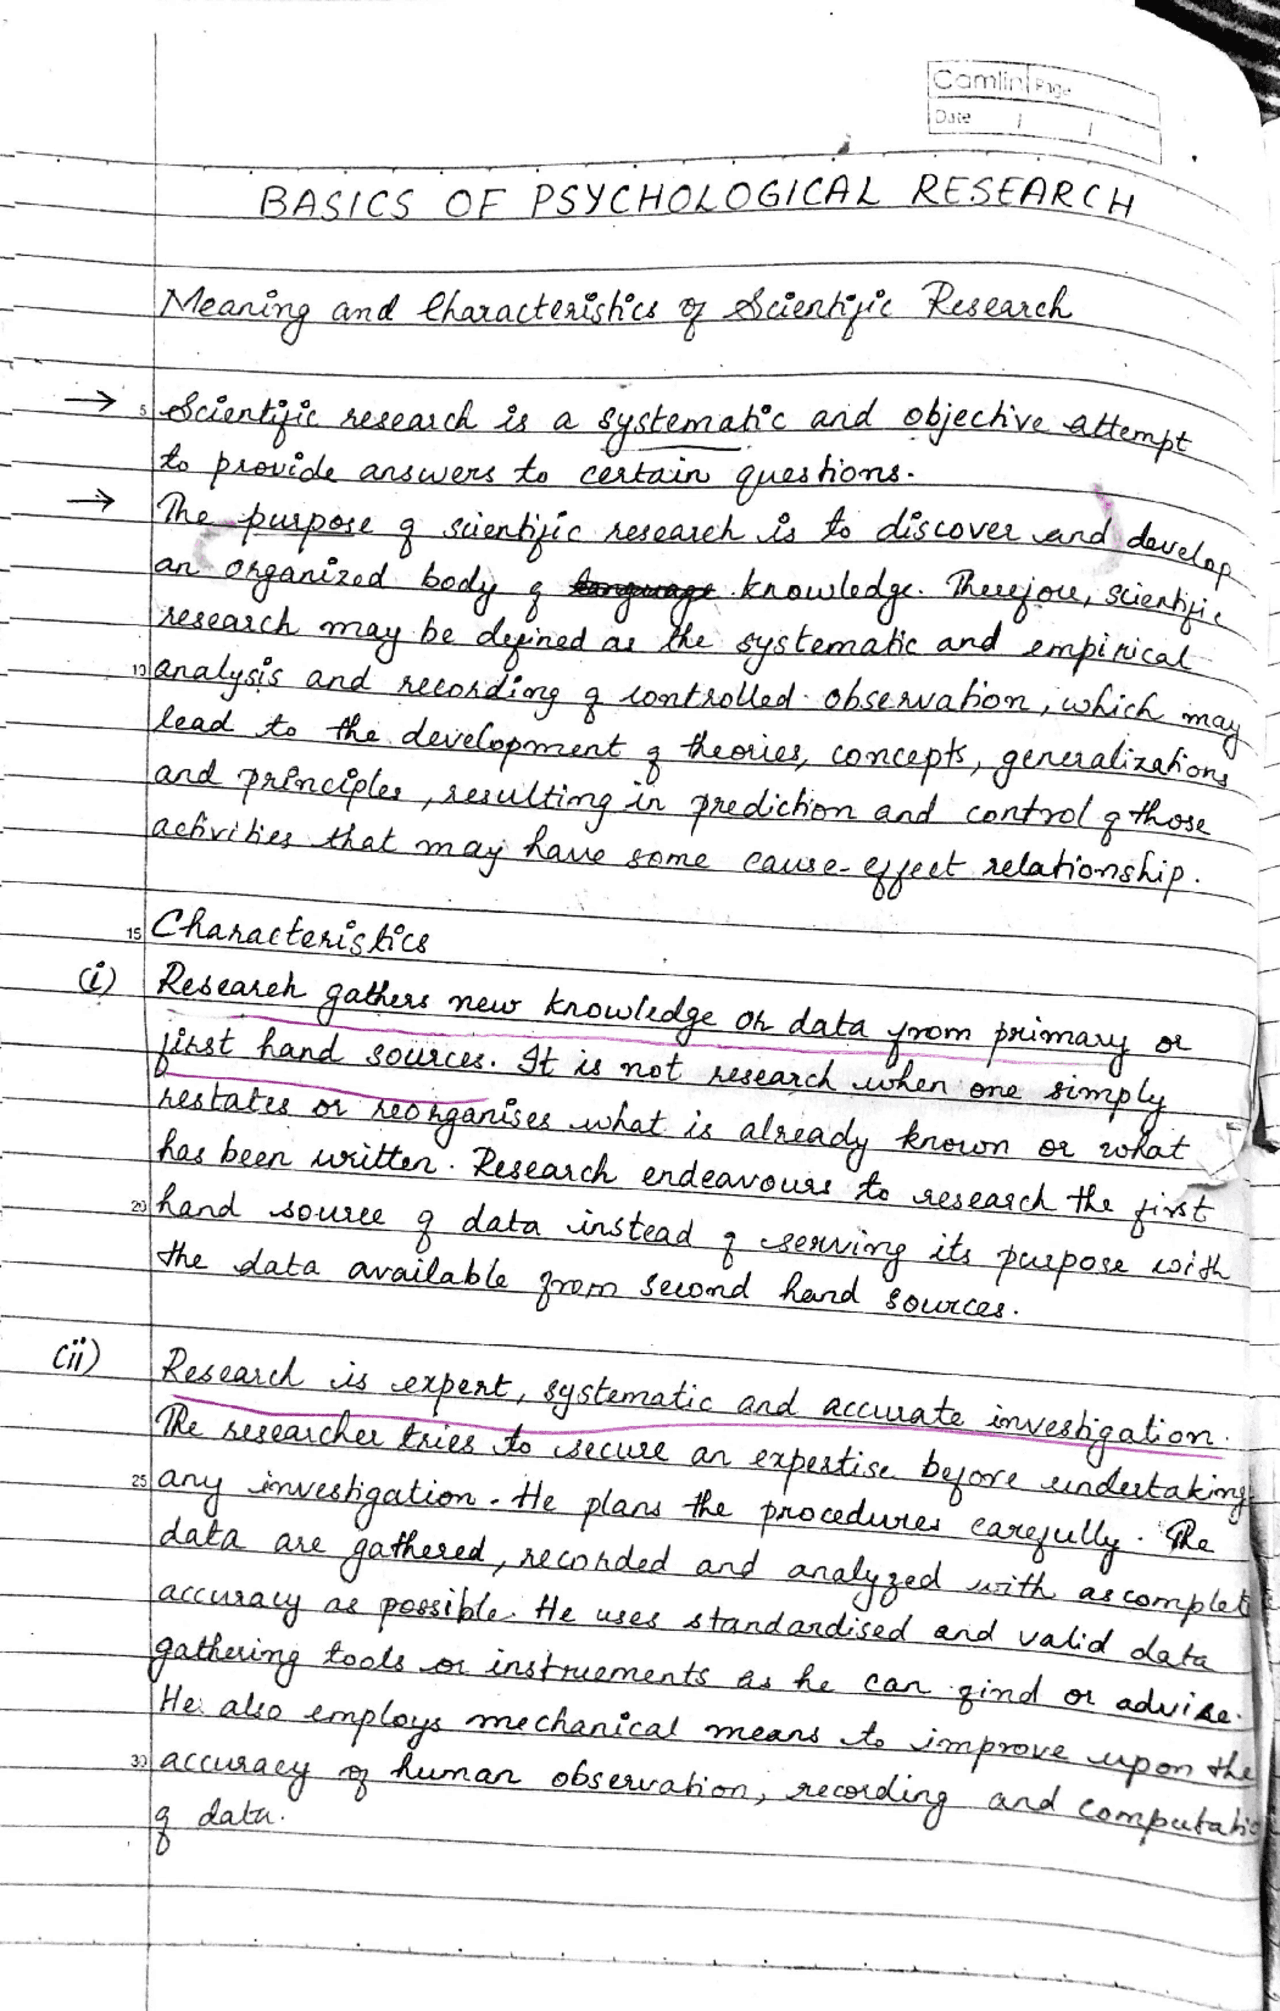 Camlin Page
Date / /
BASICS OF PSYCHOLOGICAL RESEARCH
Meaning and Characteristics of Scientific Research
→ 5 Scientific research is a systematic and objective attempt
to provide answers to certain questions.
→ The purpose of scientific research is to discover and develop
an organized body of language knowledge. Therefore, scientific
research may be defined as the systematic and empirical
10 analysis and recording of controlled observation, which may
lead to the development of theories, concepts, generalizations
and principles, resulting in prediction and control of those
activities that may have some cause-effect relationship.
15 Characteristics
(i) Research gathers new knowledge or data from primary or
first hand sources. It is not research when one simply
restates or reorganises what is already known or what
has been written. Research endeavours to research the first
20 hand source of data instead of serving its purpose with
the data available from second hand sources.
(ii) Research is expert, systematic and accurate investigation.
The researcher tries to secure an expertise before undertaking
25 any investigation. He plans the procedures carefully. The
data are gathered, recorded and analyzed with as complete
accuracy as possible. He uses standardised and valid data
gathering tools or instruements as he can find or advise.
He also employs mechanical means to improve upon the
30 accuracy of human observation, recording and computatio
of data.